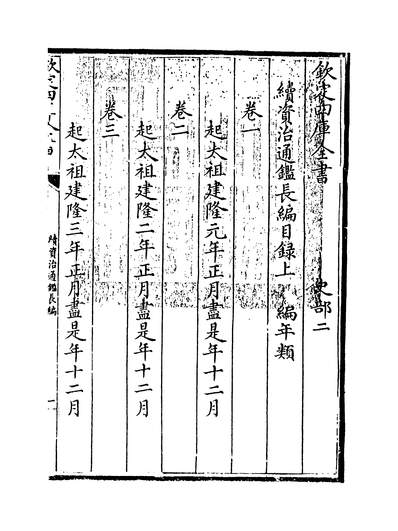 欽定四庫全書　史部二
續資治通鑑長編目録上　編年類
卷一
起太祖建隆元年正月盡是年十二月
卷二
起太祖建隆二年正月盡是年十二月
卷三
起太祖建隆三年正月盡是年十二月
欽定四庫全書
續資治通鑑長編
一